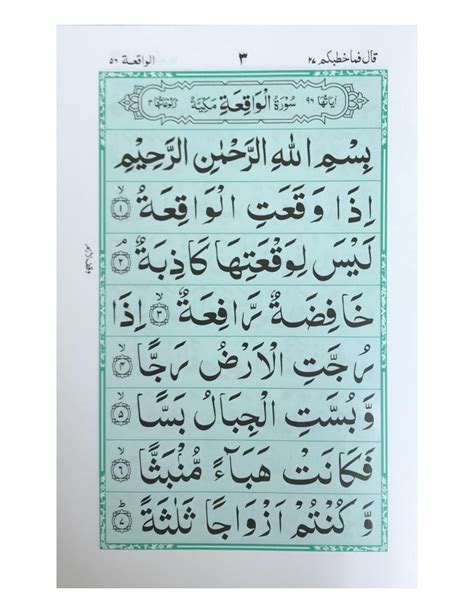 قال فماخطبكم ٢٧ ٣ الواقعة ٥٦
اٰیَاتُهَا ٩٦ سُوْرَةُ الْوَاقِعَةِ مَكِّيَّةٌ رُكُوْعَاتُهَا ٣
بِسْمِ اللهِ الرَّحْمٰنِ الرَّحِيْمِ
اِذَا وَقَعَتِ الْوَاقِعَةُ ۙ ١
لَيْسَ لِوَقْعَتِهَا كَاذِبَةٌ ۘ ٢
وقف لازم
خَافِضَةٌ رَّافِعَةٌ ۙ ٣ اِذَا
رُجَّتِ الْاَرْضُ رَجًّا ۙ ٤
وَّ بُسَّتِ الْجِبَالُ بَسًّا ۙ ٥
فَكَانَتْ هَبَآءً مُّنْۢبَثًّا ۙ ٦
وَّ كُنْتُمْ اَزْوَاجًا ثَلٰثَةً ؕ ٧